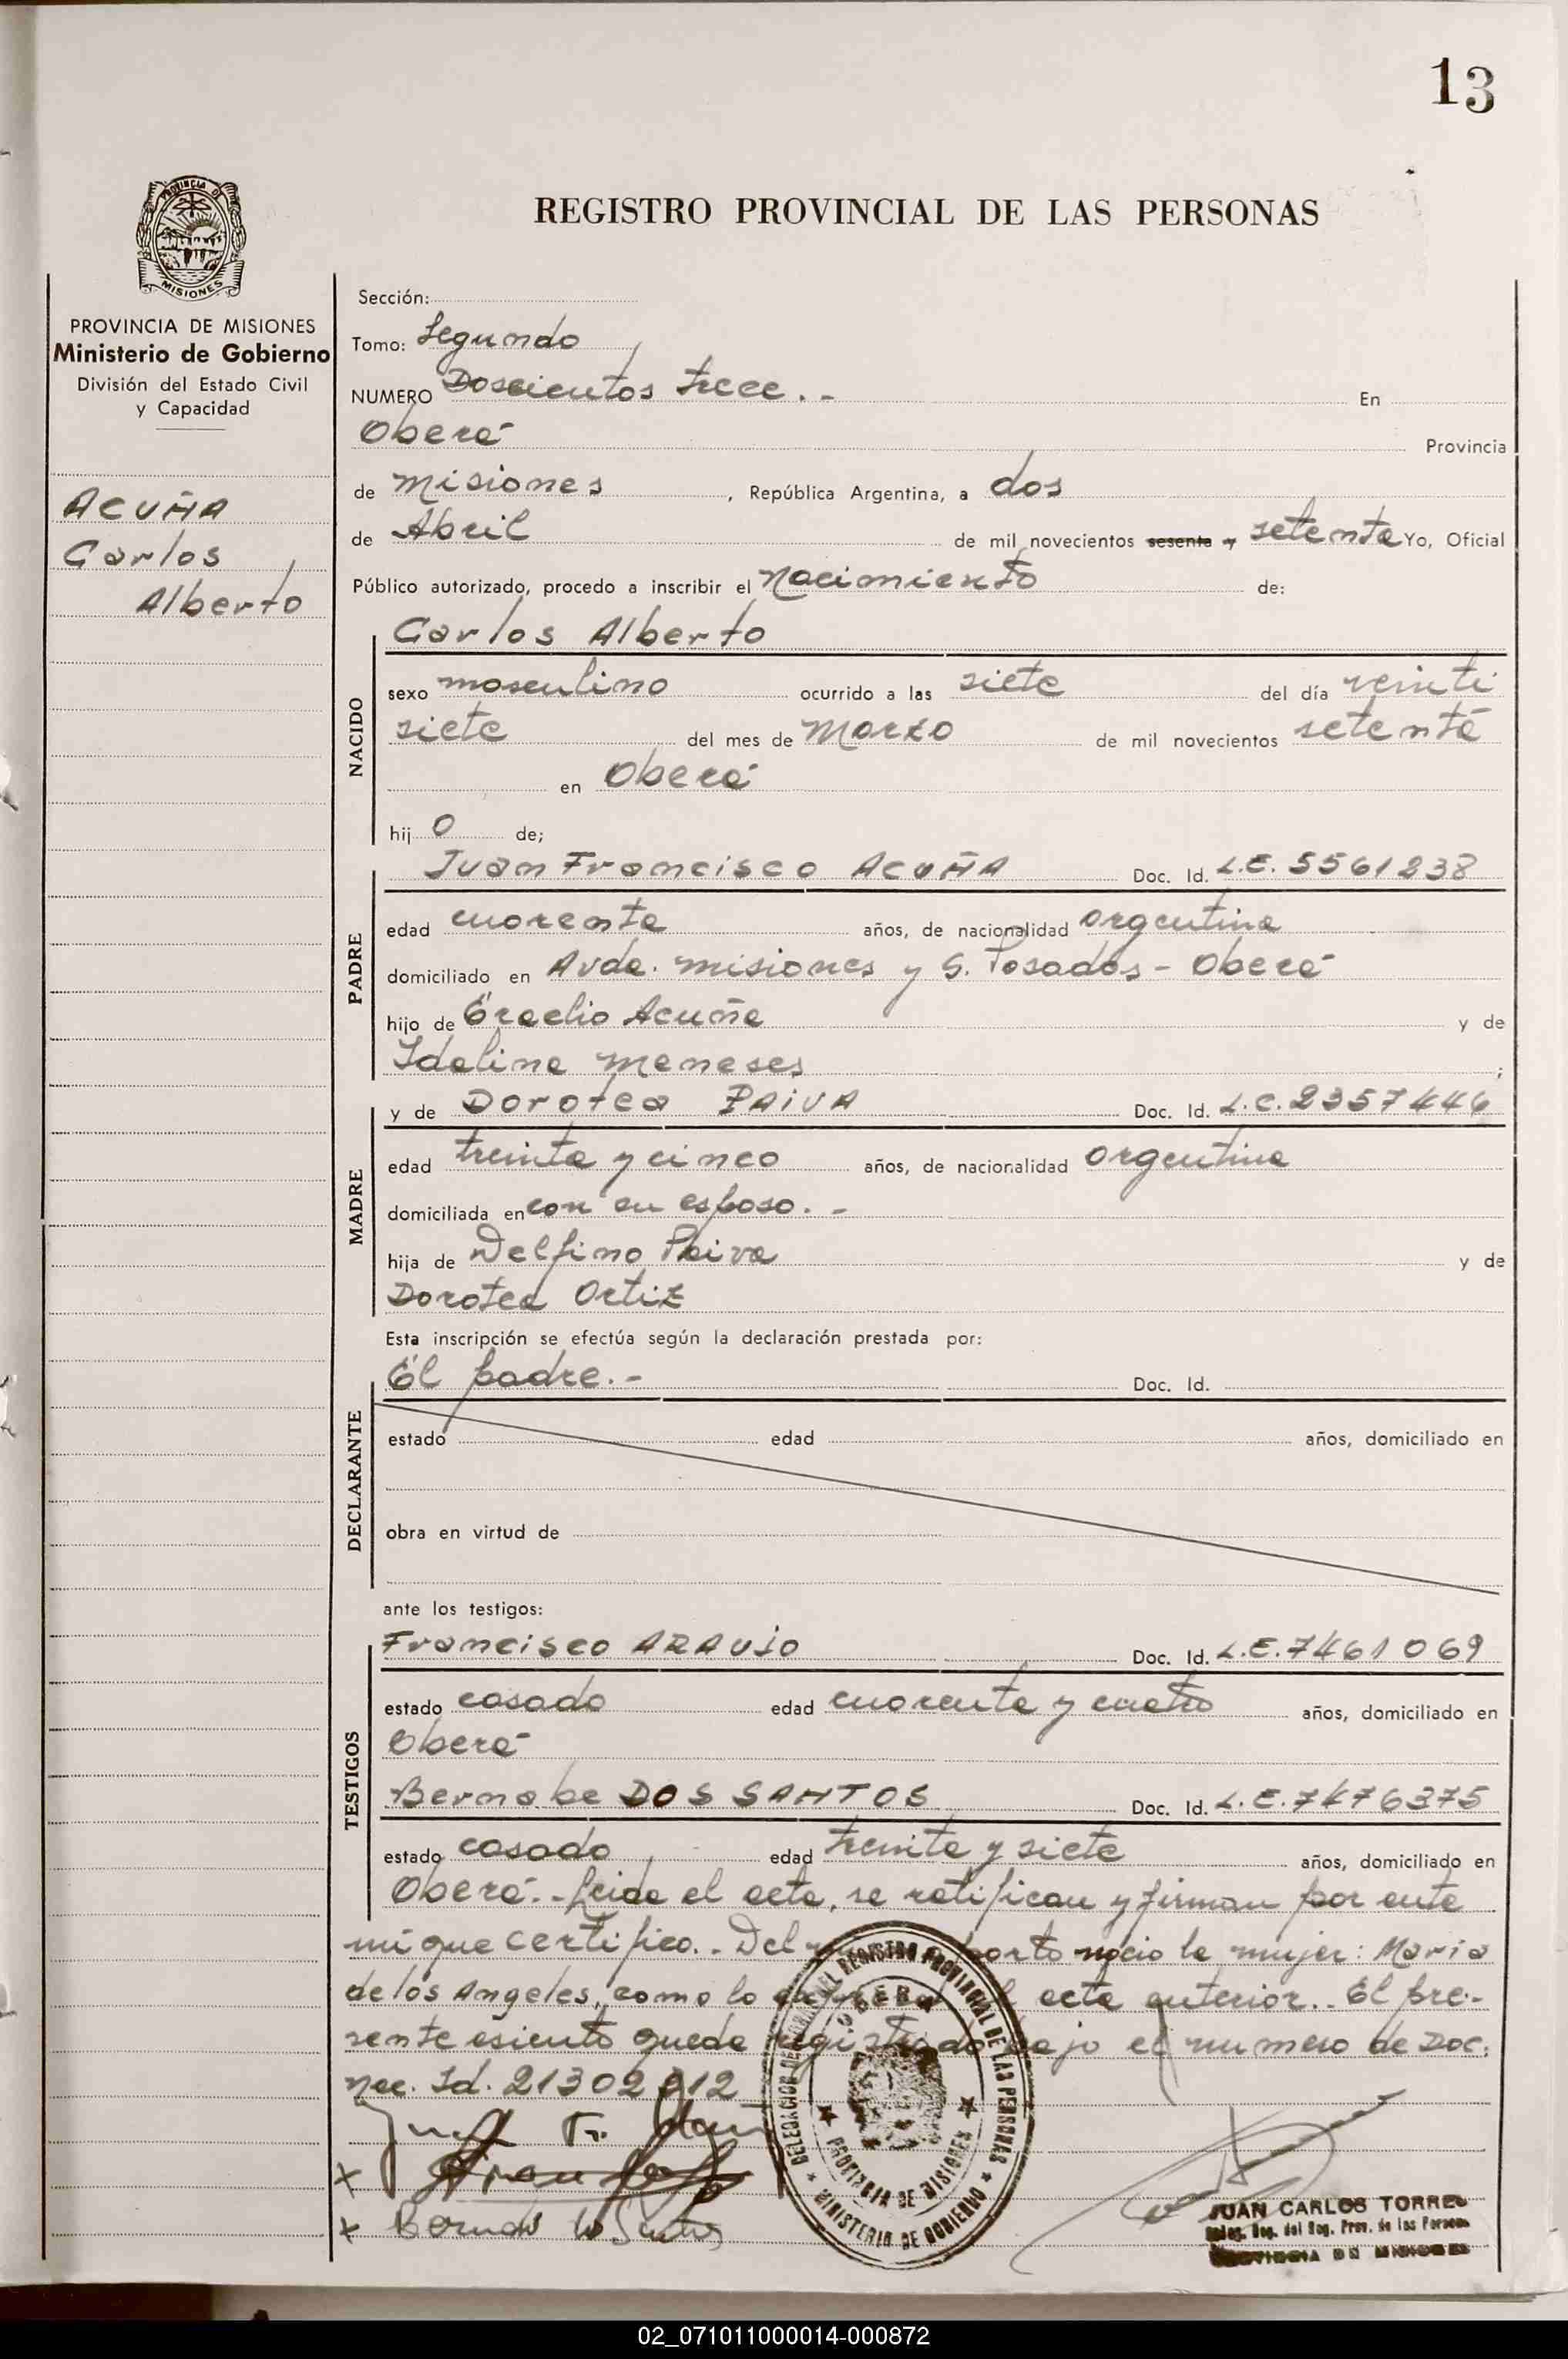 13
PROVINCIA DE
MISIONES
REGISTRO PROVINCIAL DE LAS PERSONAS
PROVINCIA DE MISIONES
Ministerio de Gobierno
División del Estado Civil
y Capacidad
ACUÑA
Carlos
Alberto
Sección:
Tomo: Segundo
NUMERO Doscientos trece.- En
Oberá Provincia
de Misiones, República Argentina, a dos
de Abril de mil novecientos sesenta y setenta Yo, Oficial
Público autorizado, procedo a inscribir el Nacimiento de:
Carlos Alberto
NACIDO
sexo masculino ocurrido a las siete del día veinti
siete del mes de Marzo de mil novecientos setenta
en Oberá
hij o de;
Juan Francisco ACUÑA Doc. Id. L.E. 5561238
PADRE
edad cuarenta años, de nacionalidad argentina
domiciliado en Avda. Misiones y G. Posadas - Oberá
hijo de Eraclio Acuña y de
Idalina Meneses;
y de Dorotea PAIVA Doc. Id. L.C. 2357446
MADRE
edad treinta y cinco años, de nacionalidad argentina
domiciliada en con su esposo.-
hija de Delfino Paiva y de
Dorotea Ortiz
Esta inscripción se efectúa según la declaración prestada por:
El padre.- Doc. Id.
DECLARANTE
estado edad años, domiciliado en
obra en virtud de
ante los testigos:
Francisco ARAUJO Doc. Id. L.E. 7461069
TESTIGOS
estado casado edad cuarenta y cuatro años, domiciliado en
Oberá
Bernabe DOS SANTOS Doc. Id. L.E. 7476375
estado casado edad treinta y siete años, domiciliado en
Oberá.- Leida el acta, se ratifican y firman por ante
mi que certifico.- Del parto nació la mujer: Maria
de los Angeles, como lo expresa el acta anterior.- El pre-
sente asiento queda registrado bajo el numero de Doc.
Nac. Id. 21302912
DELEGACION DEL REGISTRO PROVINCIAL DE LAS PERSONAS
OBERA
PROVINCIA DE MISIONES
MINISTERIO DE GOBIERNO
JUAN CARLOS TORRES
Deleg. Reg. del Reg. Prov. de las Personas
PROVINCIA DE MISIONES
02_071011000014-000872